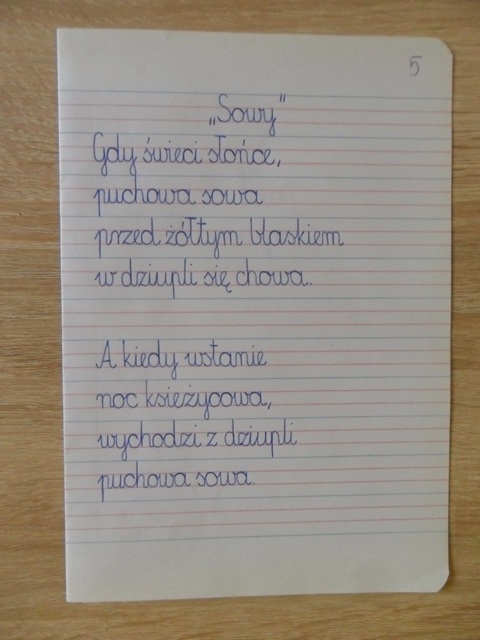 5
„Sowy”
Gdy świeci słońce,
puchowa sowa
przed żółtym blaskiem
w dziupli się chowa.
A kiedy wstanie
noc księżycowa,
wychodzi z dziupli
puchowa sowa.